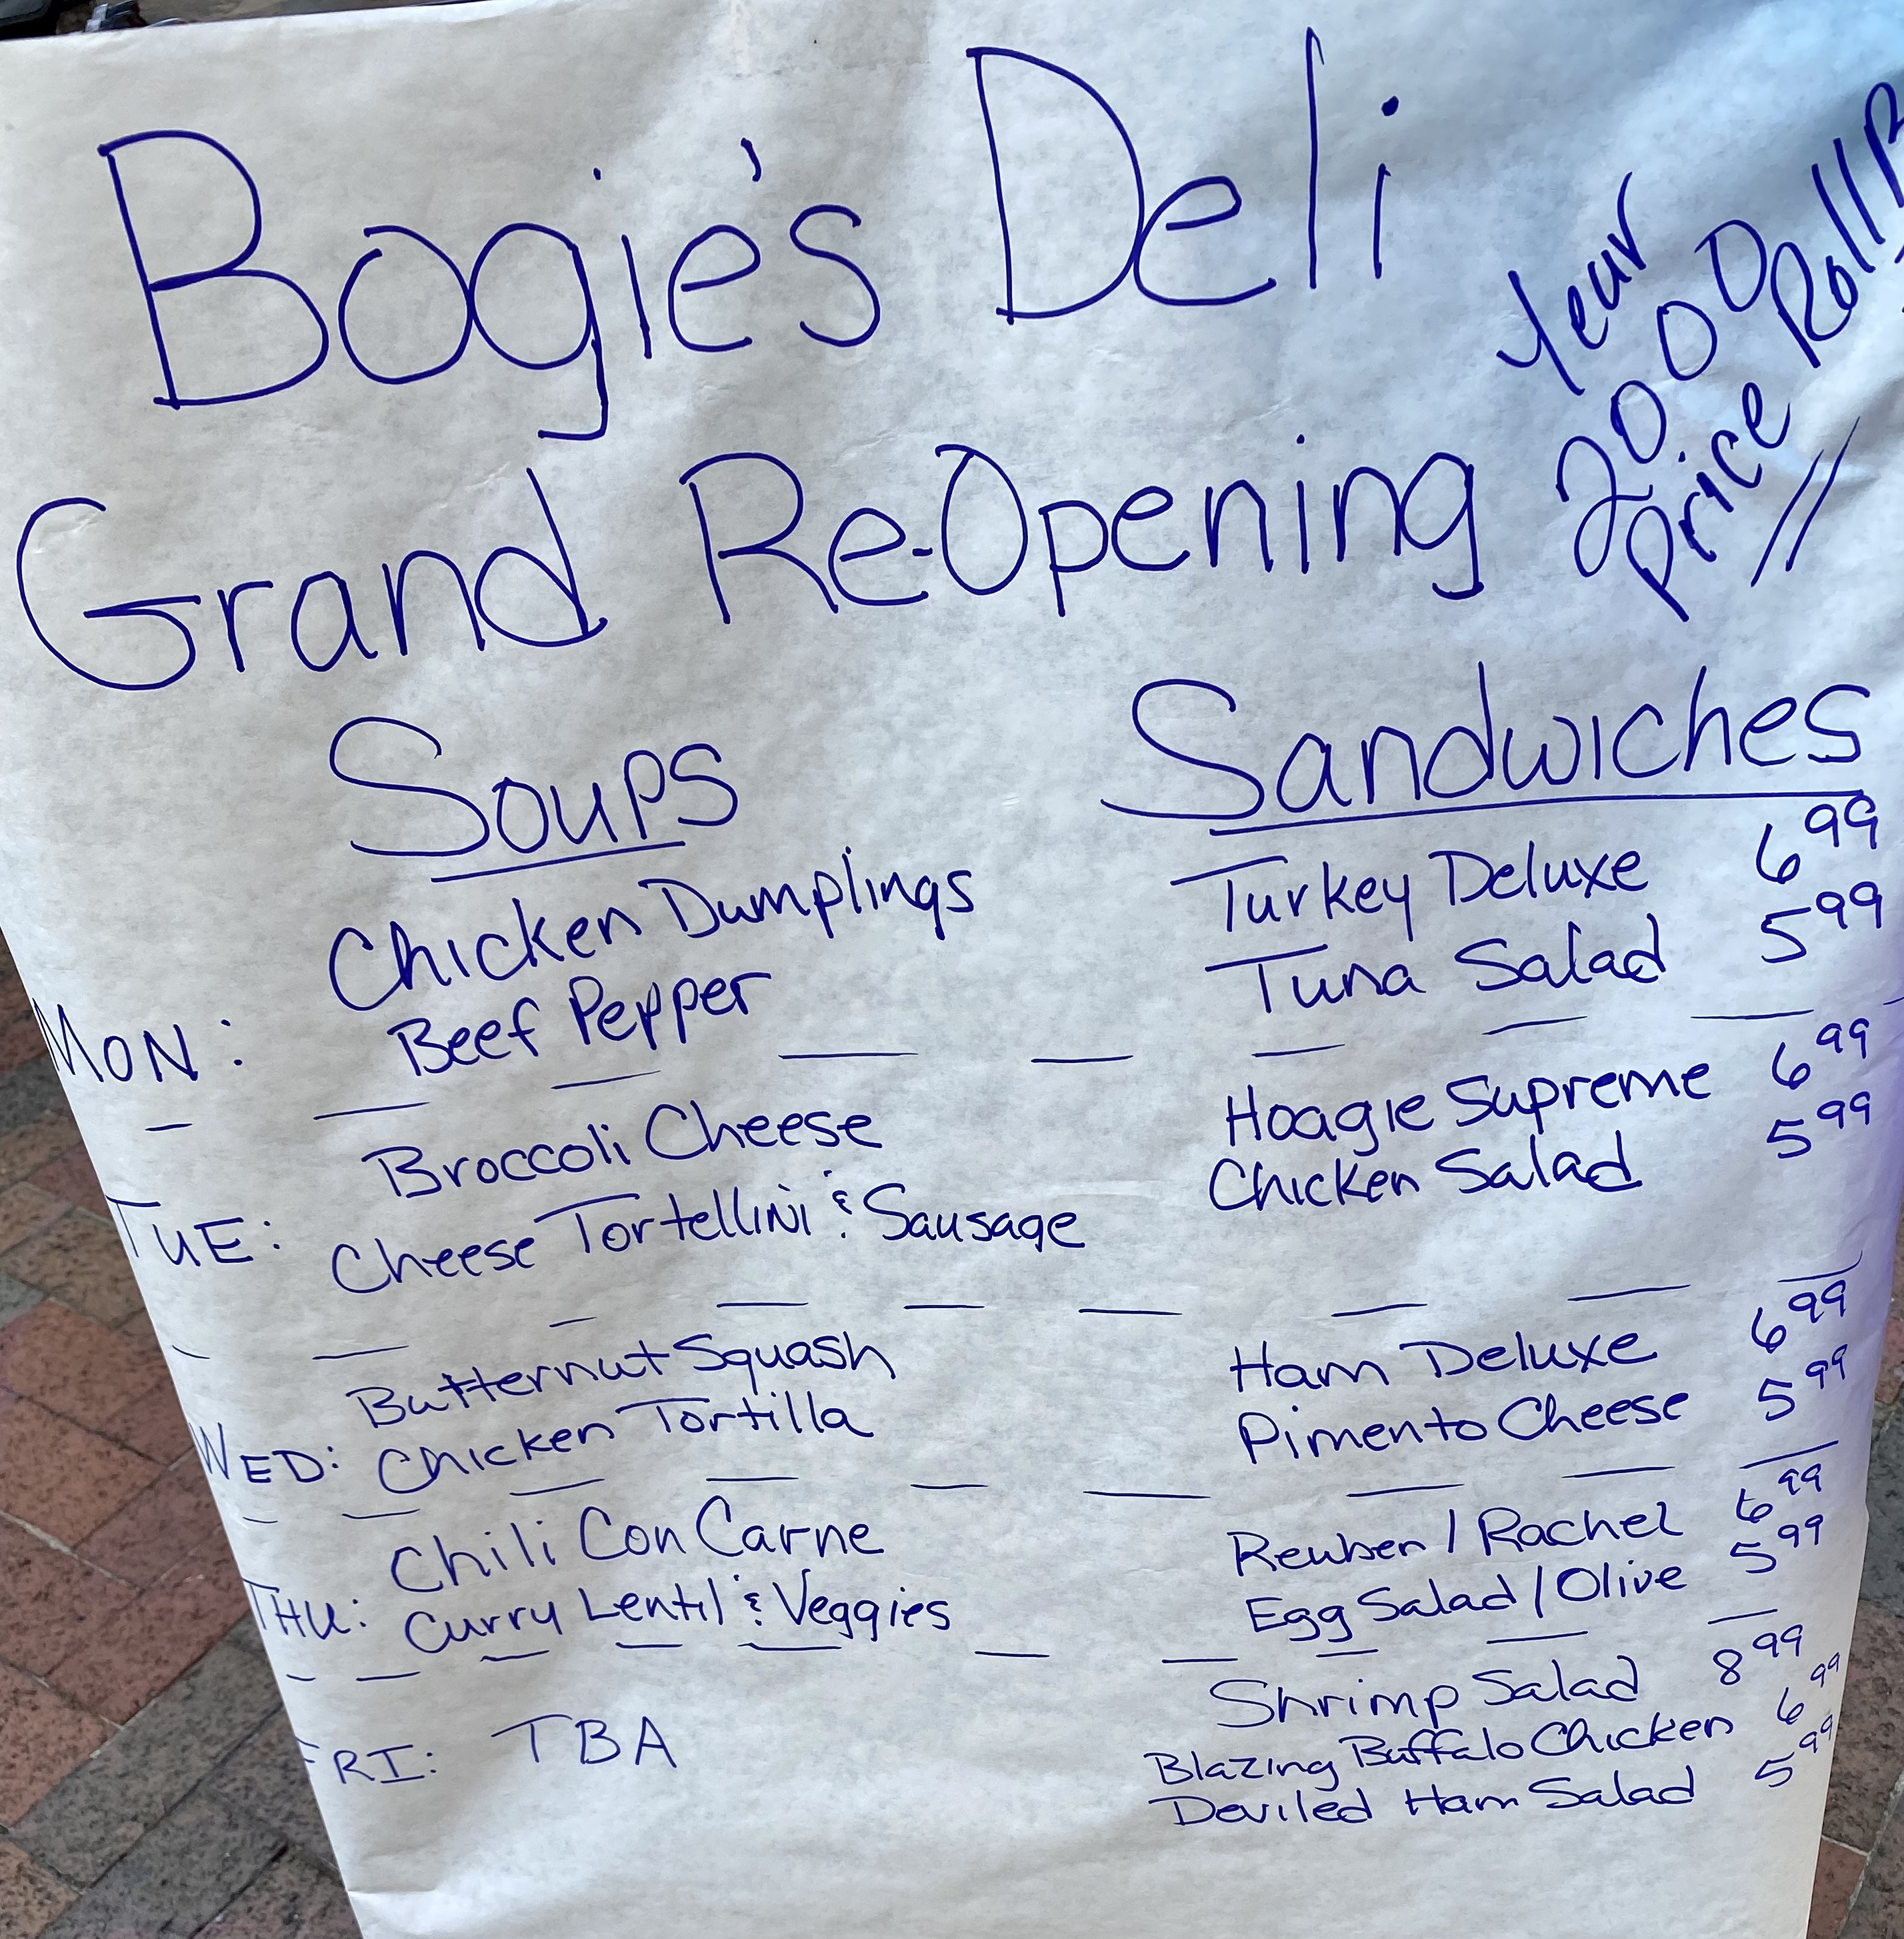 Bogie's Deli
Grand Re-Opening
Year
2000
Price
Soups
Sandwiches
Chicken Dumplings
Turkey Deluxe 6 99
MON: Beef Pepper
Tuna Salad 5 99
Broccoli Cheese
Hoagie Supreme 6 99
TUE: Cheese Tortellini & Sausage
Chicken Salad 5 99
Butternut Squash
Ham Deluxe 6 99
WED: Chicken Tortilla
Pimento Cheese 5 99
Chili Con Carne
Reuben / Rachel 6 99
THU: Curry Lentil & Veggies
Egg Salad / Olive 5 99
FRI: TBA
Shrimp Salad 8 99
Blazing Buffalo Chicken 6 99
Deviled Ham Salad 5 99